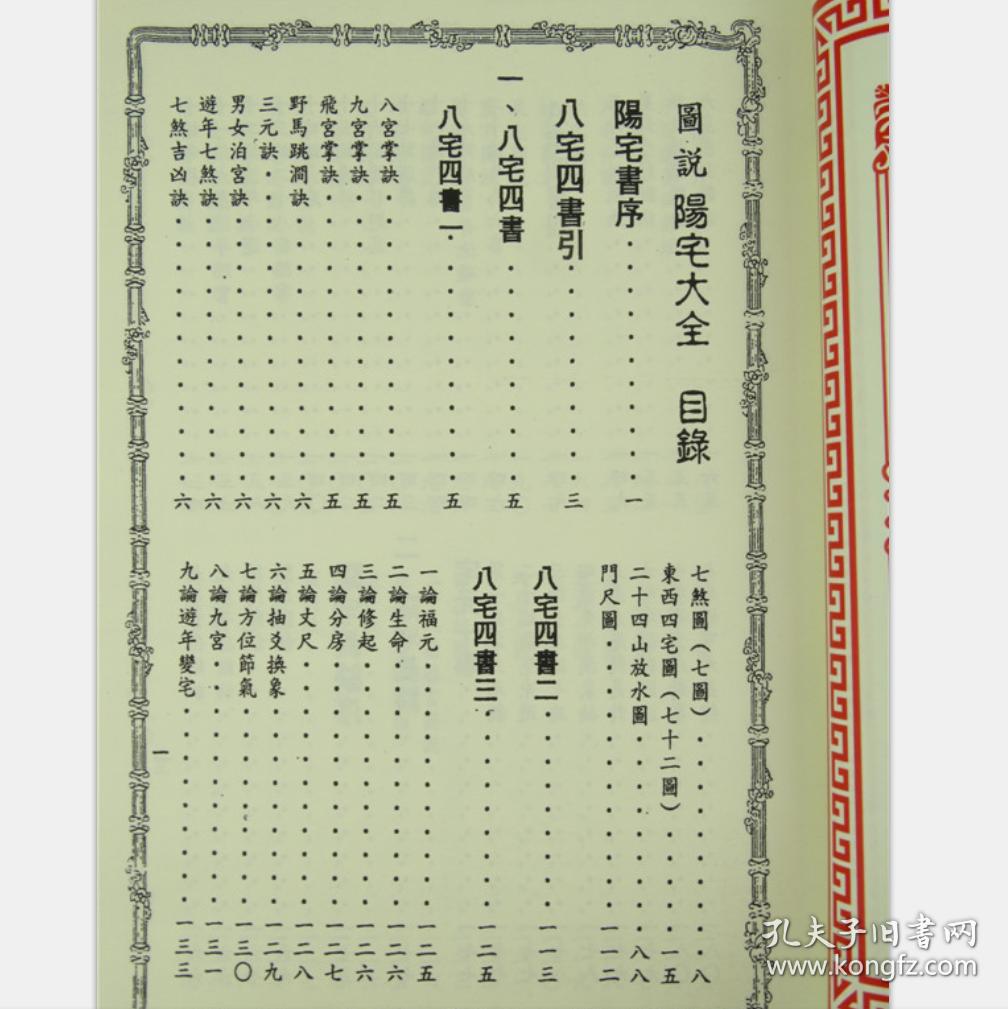 圖説陽宅大全 目錄
陽宅書序・・・・・・・・・・一
八宅四書引・・・・・・・・・・三
一、八宅四書・・・・・・・・・五
八宅四書一・・・・・・・・・・五
八宮掌訣・・・・・・・・・・・五
九宮掌訣・・・・・・・・・・・五
飛宮掌訣・・・・・・・・・・・五
野馬跳澗訣・・・・・・・・・・六
三元訣・・・・・・・・・・・・六
男女泊宮訣・・・・・・・・・・六
遊年七煞訣・・・・・・・・・・六
七煞吉凶訣・・・・・・・・・・六
七煞圖(七圖)・・・・・・・・八
東西四宅圖(七十二圖)・・・・一五
二十四山放水圖・・・・・・・・八八
門尺圖・・・・・・・・・・・・一一二
八宅四書二・・・・・・・・・・一一三
八宅四書三・・・・・・・・・・一二五
一論福元・・・・・・・・・・・一二五
二論生命・・・・・・・・・・・一二六
三論修起・・・・・・・・・・・一二六
四論分房・・・・・・・・・・・一二七
五論丈尺・・・・・・・・・・・一二八
六論抽爻換象・・・・・・・・・一二九
七論方位節氣・・・・・・・・・一三〇
八論九宮・・・・・・・・・・・一三一
九論遊年變宅・・・・・・・・・一三三
一
孔夫子旧书网
www.kongfz.com